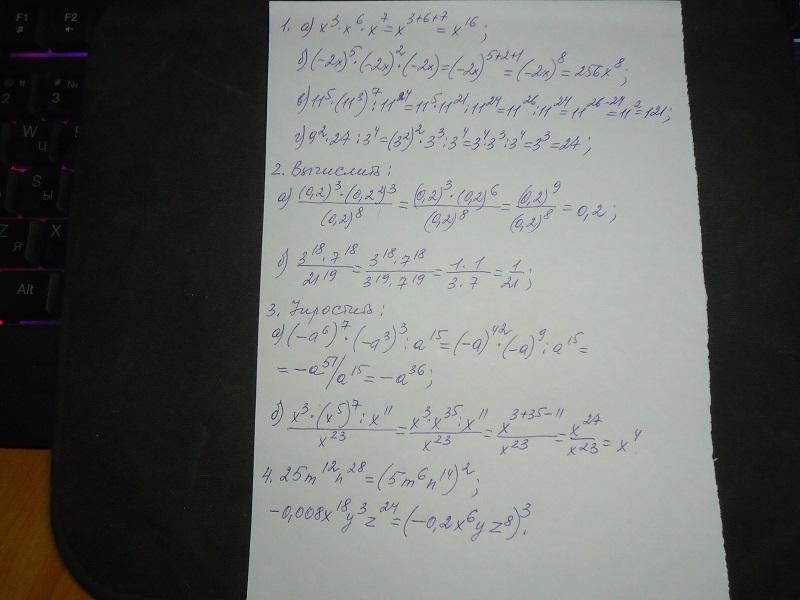 F1 F2
2 3 №
W Ц
S Ы
Z Я X
Alt
1. а) x³·x⁶·x⁷=x³⁺⁶⁺⁷=x¹⁶;
б) (-2x)⁵·(-2x)²·(-2x)=(-2x)⁵⁺²⁺¹=(-2x)⁸=256x⁸;
в) 11⁵·(11³)⁷:11²⁴=11⁵·11²¹:11²⁴=11²⁶:11²⁴=11²⁶⁻²⁴=11²=121;
г) 9²·27:3⁴=(3²)²·3³:3⁴=3⁴·3³:3⁴=3³=27;
2. Вычислить:
а) (0,2)³·(0,2²)³/(0,2)⁸=(0,2)³·(0,2)⁶/(0,2)⁸=(0,2)⁹/(0,2)⁸=0,2;
б) 3¹⁸·7¹⁸/21¹⁹=3¹⁸·7¹⁸/3¹⁹·7¹⁹=1·1/3·7=1/21;
3. Упростить:
а) (-a⁶)⁷·(-a³)³:a¹⁵=(-a)⁴²·(-a)⁹:a¹⁵=
=-a⁵¹/a¹⁵=-a³⁶;
б) x³·(x⁵)⁷:x¹¹/x²³=x³·x³⁵:x¹¹/x²³=x³⁺³⁵⁻¹¹/x²³=x²⁷/x²³=x⁴.
4. 25m¹²n²⁸=(5m⁶n¹⁴)²;
-0,008x¹⁸y³z²⁴=(-0,2x⁶yz⁸)³.